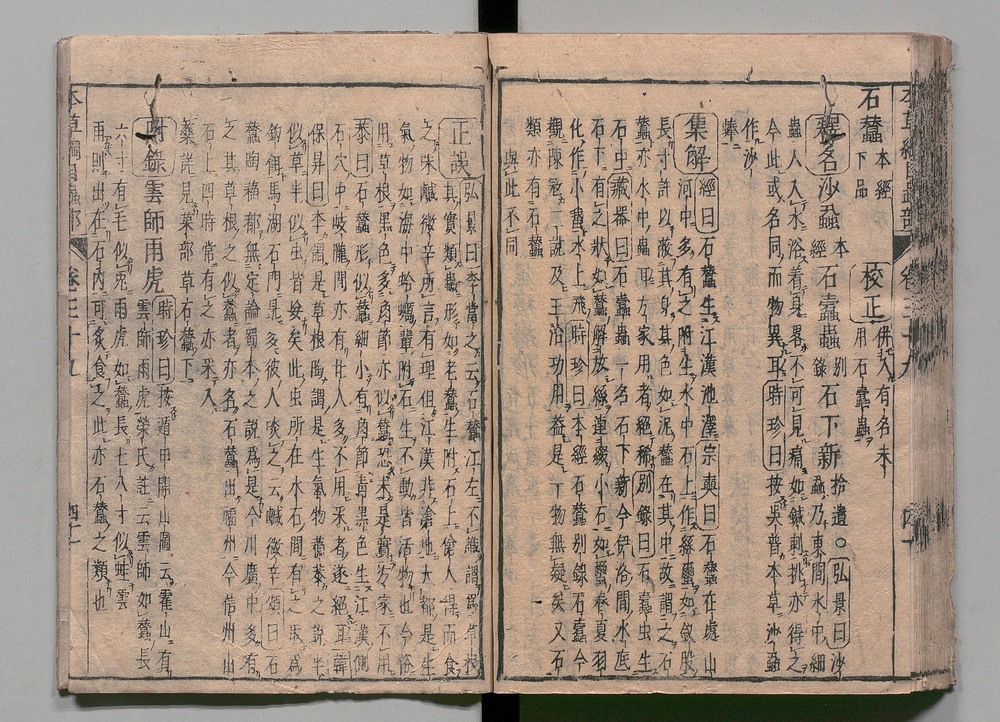 石蠶 本經下品 校正 併入有名未用石蠹蟲
釋名 沙蝨 本經 石蠹蟲 別錄 石下新 拾遺 ○弘景曰沙
蝨乃東間水中細
蟲人入水浴着身畧不可見痛如鍼刺挑亦得之
今此或名同而物異耳時珍曰按吳普本草沙蝨
作沙
集解 經曰石蠶生江漢池澤宗奭曰石蠶在處山
河中多有之附生水中石上作絲蠒如釵股
長寸許以蔽其身其色如泥蠶在其中故謂之石
蠶亦水中蟲耳方家用者絕稀別錄曰石蠹虫生
石中藏器曰石蠹蟲一名石下新今伊洛間水底
石下有之狀如蠶解放絲連綴小石如繭春夏羽
化作小蛾水上飛時珍曰本經石蠶別錄石蠹今
觀陳氏二說及主治功用蓋是一物無疑矣又石
類亦有石蠶
與此不同
正誤 弘景曰李當之云石蠶江左不識謂爲草根
其實類蟲形如老蠶生附石上傖人得而食
之味鹹微辛所言有理但江漢非滄地大都是生
氣物如海中蛤蠣輩附石生不動皆活物也今俗
用草根黑色多角節亦似蠶恐未是實方家不用
恭曰石蠶形似蠶細小有角節青黑色生江漢側
石穴中岐隴間亦有廿人多不用采者遂絕耳韓
保昇曰李謂是草根陶謂是生氣物蘇恭之說半
似草半似虫皆妄矣此虫所在水石間有之取爲
鈎餌馬湖石門最多彼人啖之云鹹微辛頌曰石
蠶陶蘇都無定論蜀本之說爲是今川廣中多有
之其草根之似蠶者亦名石蠶出福州今信州山
石上四時常有之亦采入
藥詳見菜部草石蠶下
附錄 雲師雨虎 時珍曰按遁甲開山圖云霍山有
雲師雨虎榮氏註云雲師如蠶長
六寸有毛似兔雨虎如蠶長七八寸似蛭雲
雨則出在石內可炙食之此亦石蠶之類也
本草綱目蟲部 卷三十九